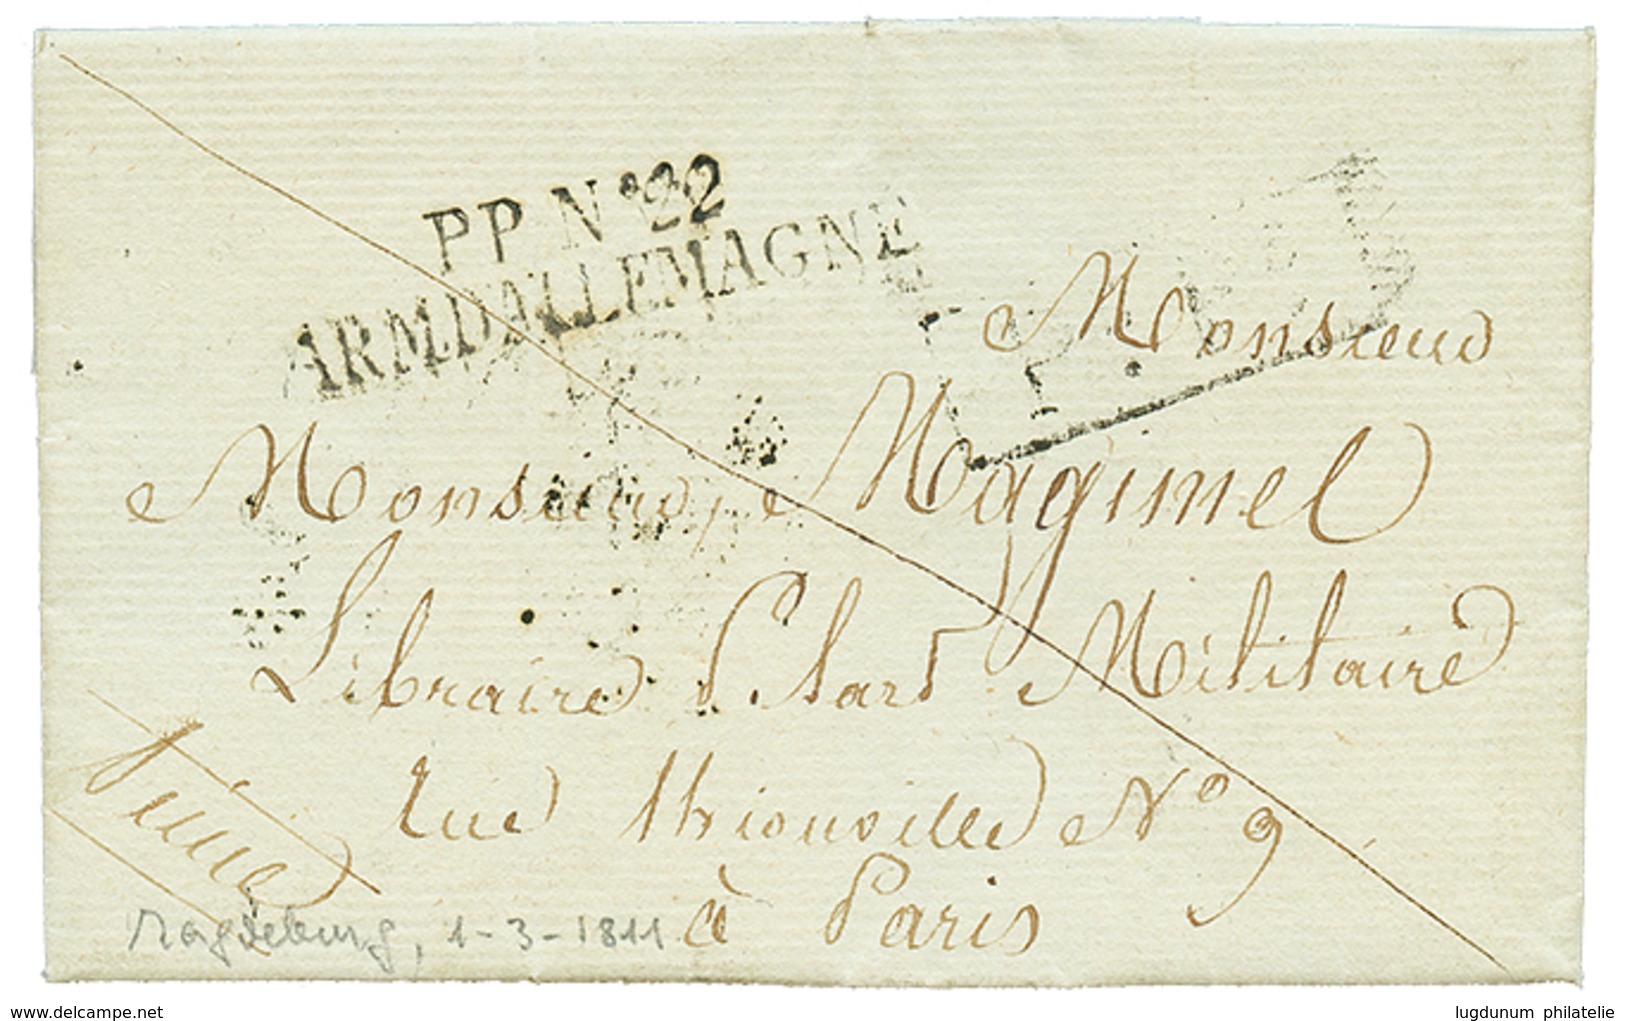 PP N° 22
ARM.D'ALLEMAGNE
P.P.
Monsieur
Monsieur, Magimel
Libraire Militaire
rue thionville N° 9
à Paris
Magdeburg, 1-3-1811
www.delcampe.net
lugdunum philatelie